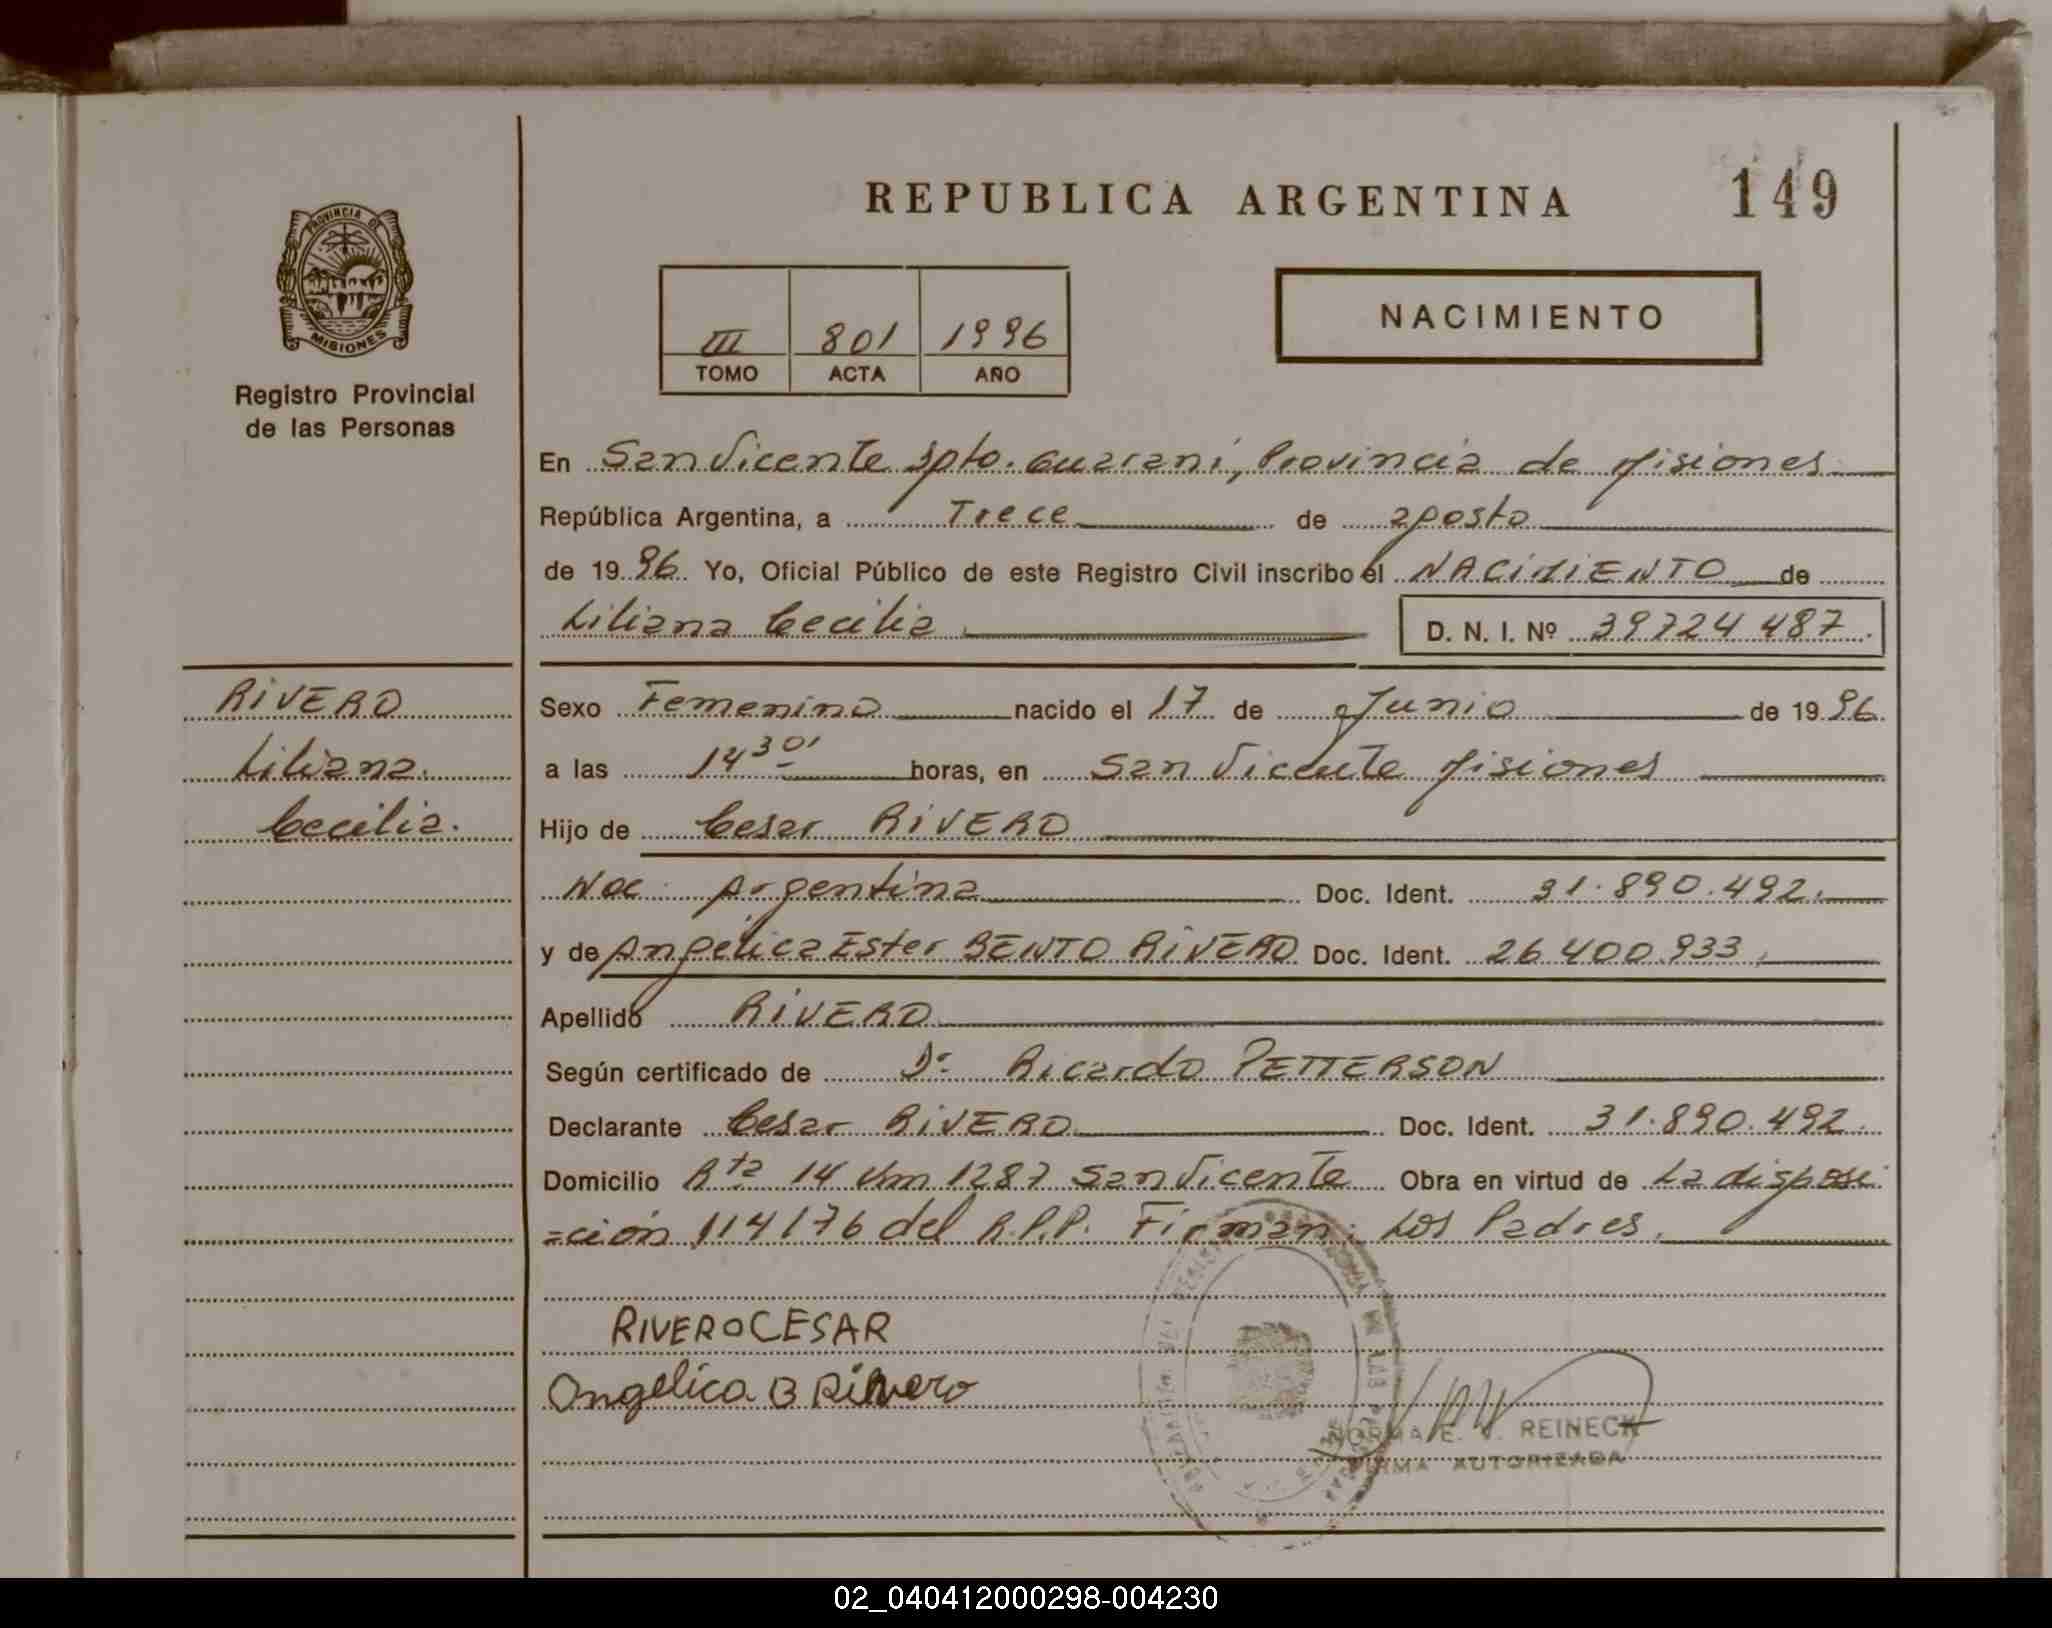 REPUBLICA ARGENTINA
149
PROVINCIA DE
MISIONES
Registro Provincial
de las Personas
III 801 1996
TOMO ACTA AÑO
NACIMIENTO
En San Vicente Dpto. Guarani, Provincia de Misiones
República Argentina, a Trece de agosto
de 1996 Yo, Oficial Público de este Registro Civil inscribo el NACIMIENTO de
Liliana Cecilia
D. N. I. Nº 39724487.
RIVERO
Liliana.
Cecilia.
Sexo Femenino nacido el 17 de Junio de 1996.
a las 14 30' horas, en San Vicente Misiones
Hijo de Cesar RIVERO
Nac. Argentina Doc. Ident. 31.890.492.
y de Angélica Ester BENTO RIVERO Doc. Ident. 26.400.933.
Apellido RIVERO
Según certificado de Dr Ricardo PETTERSON
Declarante Cesar RIVERO Doc. Ident. 31.890.492.
Domicilio Rta 14 Km 1287 San Vicente Obra en virtud de La disposi
=ción 114/76 del R.P.P. Firman: Los Padres.
RIVERO CESAR
Angelica B Rivero
NORMA E. V. REINECK
FIRMA AUTORIZADA
02_040412000298-004230